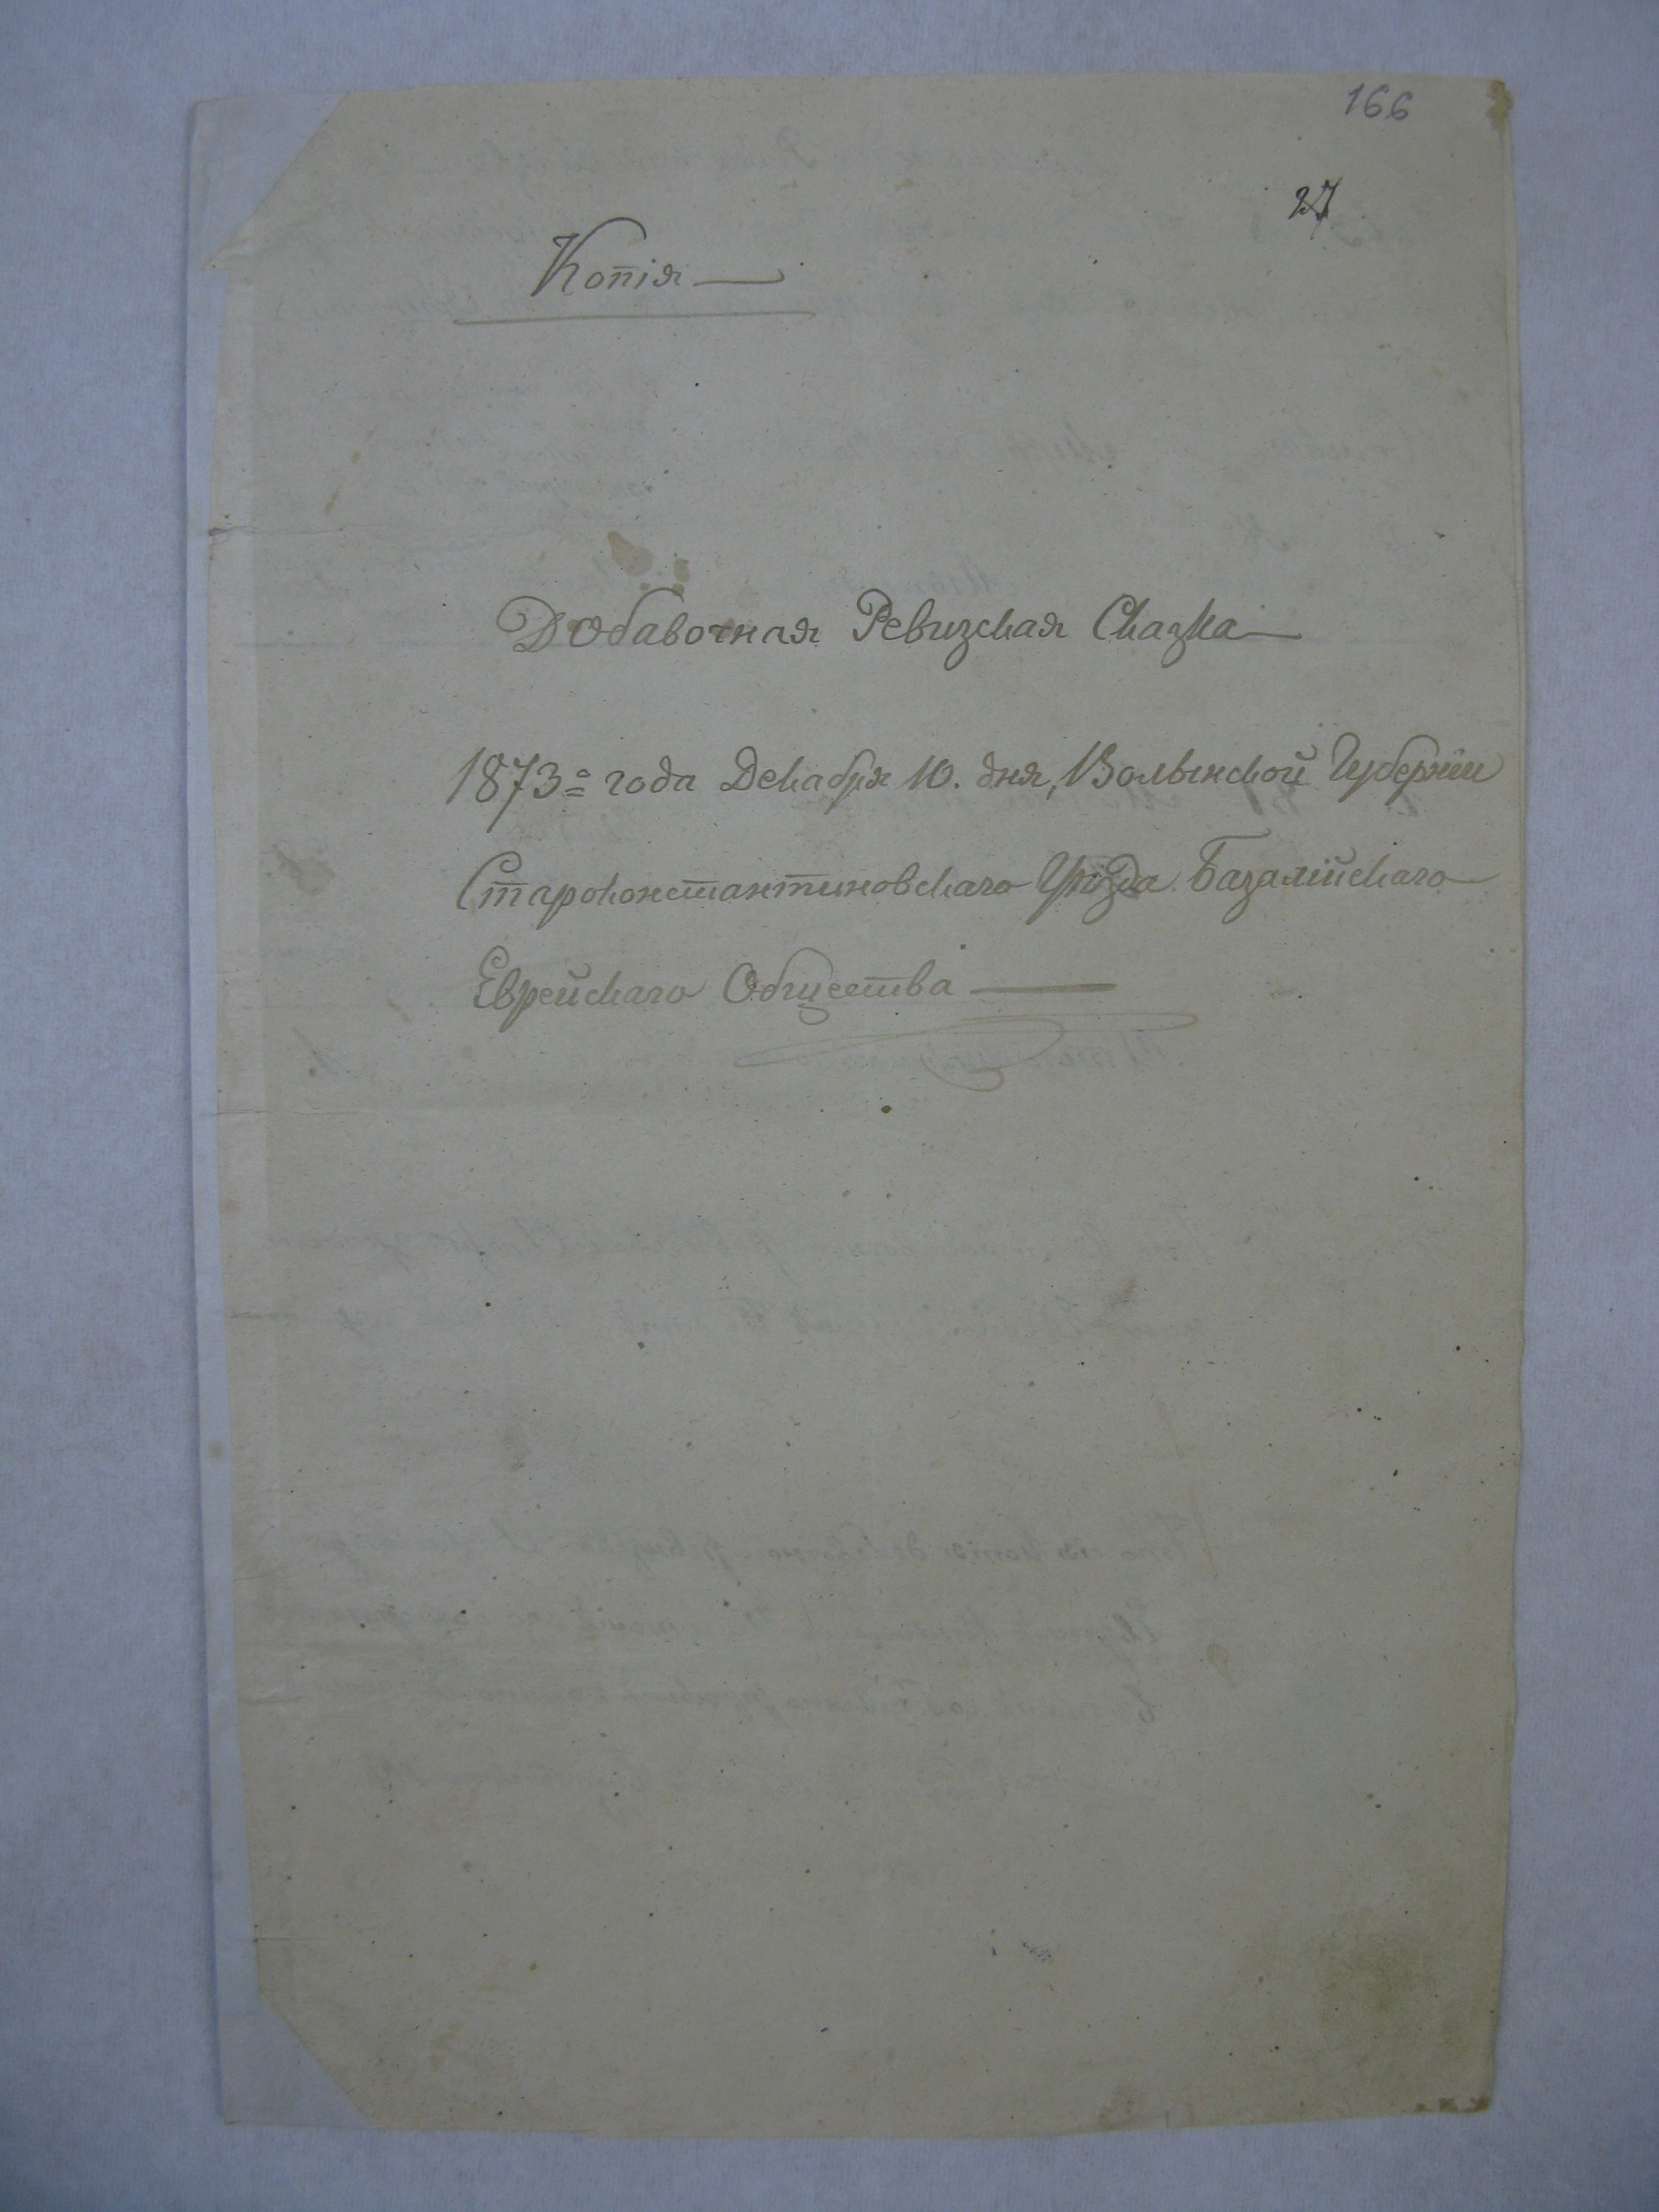 166
27
Копія
Добавочная Ревизская Сказка
1873го года Декабря 10. дня, Волынской Губерніи
Староконстантиновскаго Уѣзда Базалійскаго
Еврейскаго Общества